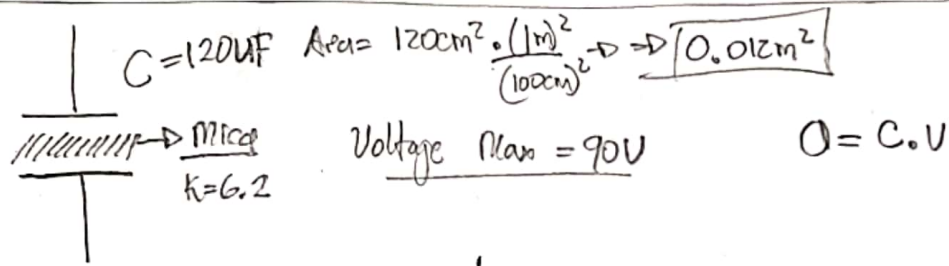 C=120uF Area= 120cm². (1m)² / (100cm)² → → 0.012m²
→ Mica Voltage Max = 90V Q= C.V
K=6.2